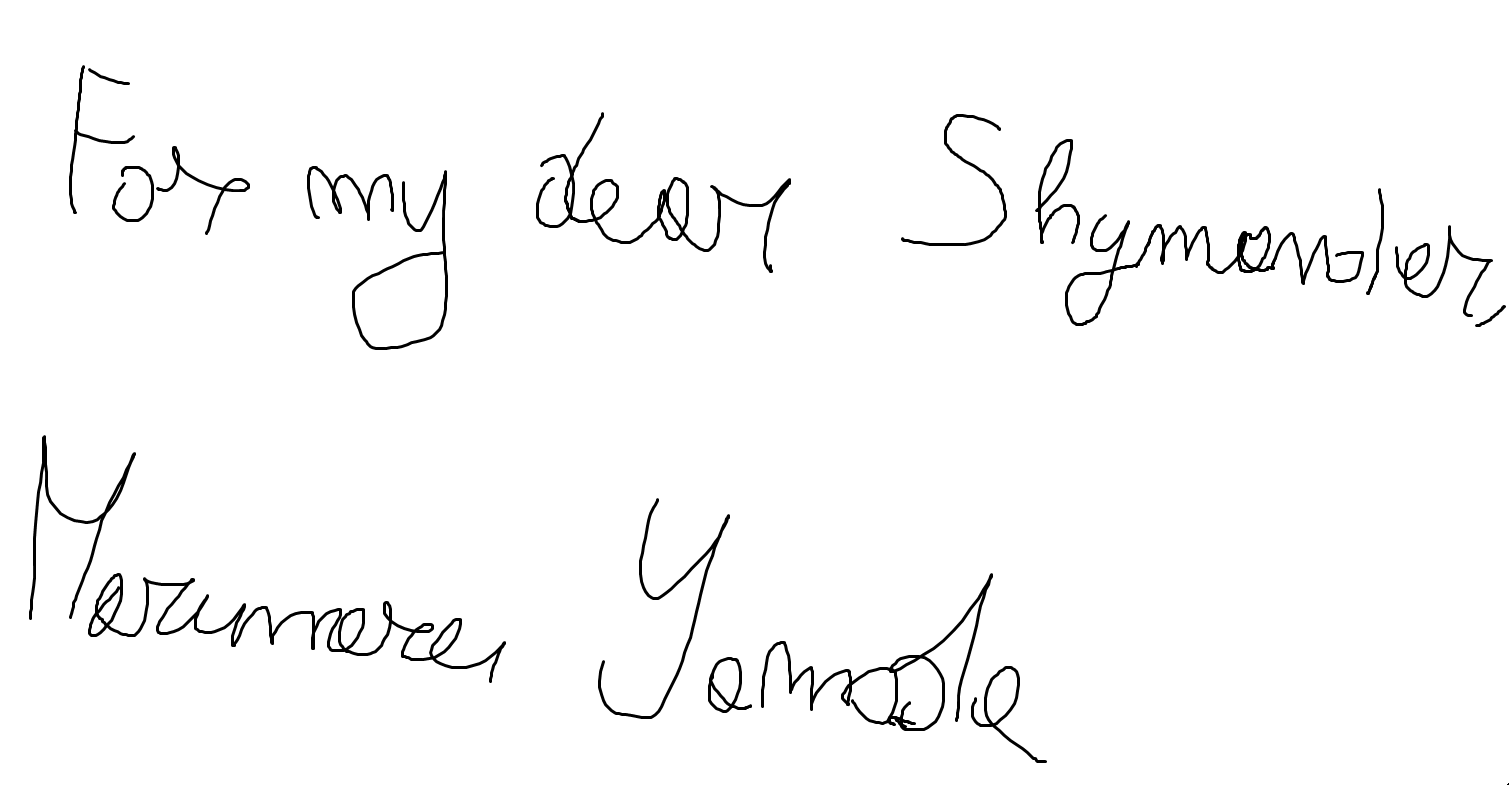 For my dear Shymander,
Marumaru Yamada